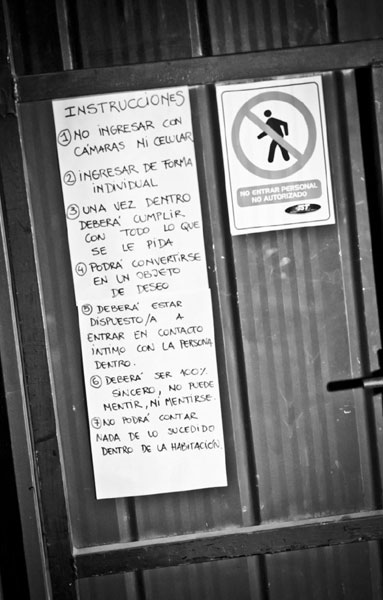 INSTRUCCIONES
① NO INGRESAR CON
CÁMARAS NI CELULAR
② INGRESAR DE FORMA
INDIVIDUAL
③ UNA VEZ DENTRO
DEBERÁ CUMPLIR
CON TODO LO QUE
SE LE PIDA
④ PODRÁ CONVERTIRSE
EN UN OBJETO
DE DESEO
⑤ DEBERÁ ESTAR
DISPUESTO/A A
ENTRAR EN CONTACTO
ÍNTIMO CON LA PERSONA
DENTRO.
⑥ DEBERÁ SER 100%
SINCERO, NO PUEDE
MENTIR, NI MENTIRSE.
⑦ NO PODRÁ CONTAR
NADA DE LO SUCEDIDO
DENTRO DE LA HABITACIÓN.
NO ENTRAR PERSONAL
NO AUTORIZADO